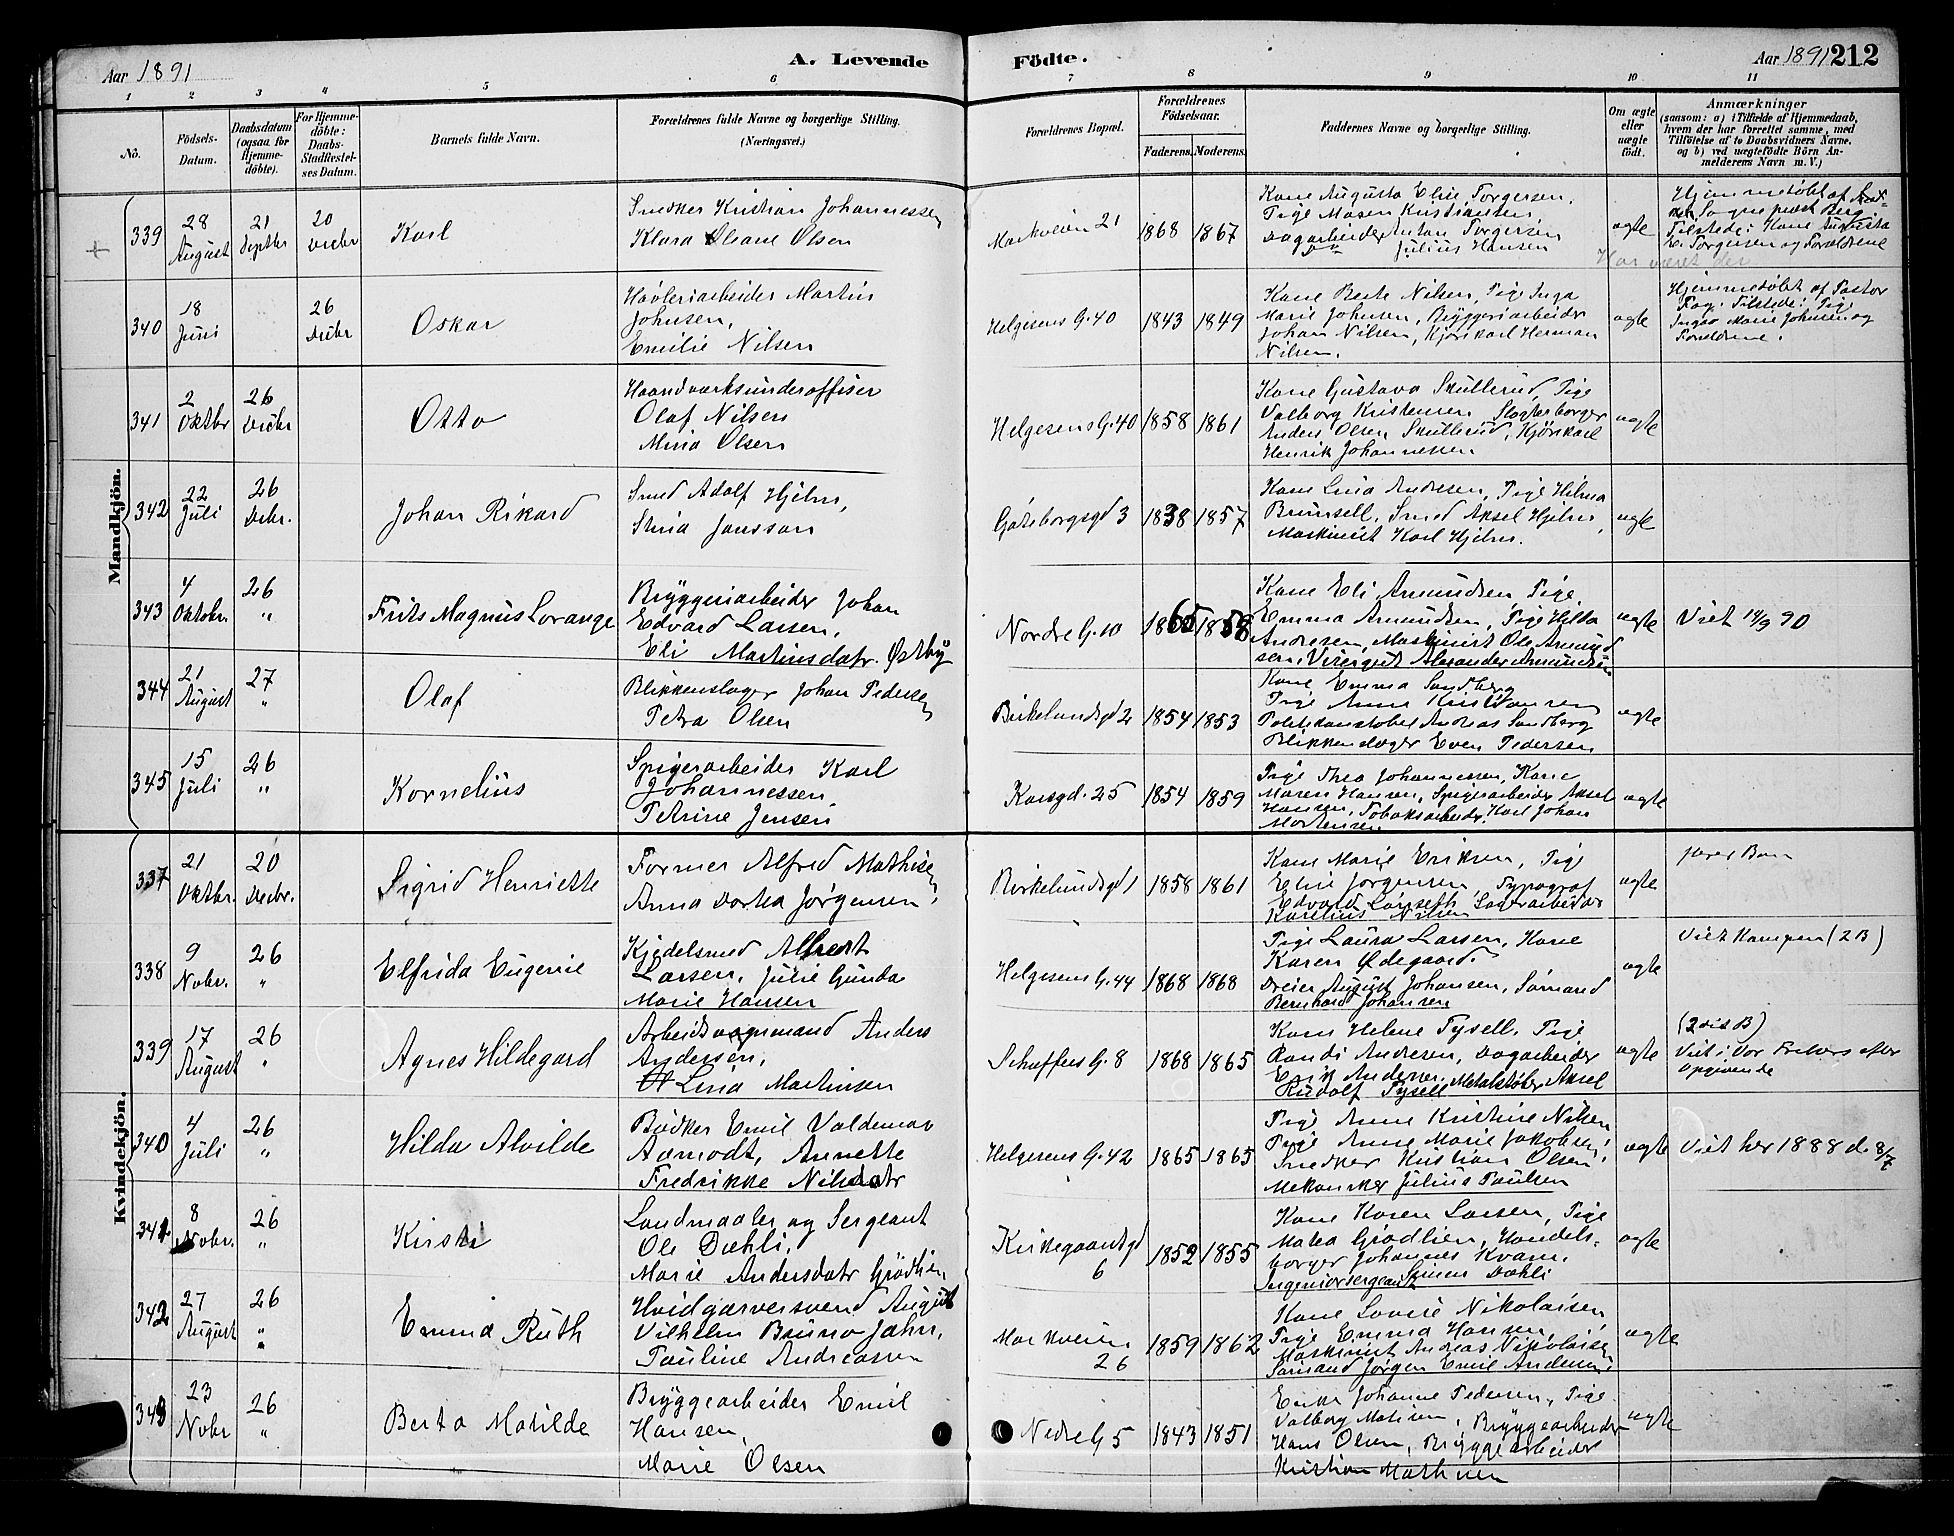 Aar 1891
A. Levende
Födte.
Aar 1891
212
1 2 3 4 5 6 7 8 9 10 11
No.
Födsels-
Datum.
Daabsdatum
(ogsaa for
Hjemme-
döbte).
For Hjemme-
döbte:
Daabs-
Stadfæstel-
ses Datum.
Barnets fulde Navn.
Forældrenes fulde Navne og borgerlige Stilling.
(Næringsvei.)
Forældrenes Bopæl.
Forældrenes
Födselsaar.
Faderens. Moderens.
Faddernes Navne og borgerlige Stilling.
Om ægte
eller
uægte
födt.
Anmærkninger
(saasom: a) i Tilfælde af Hjemmedaab,
hvem der har forrettet samme, med
Tilföielse af to Daabsvidners Navne,
og b) ved uægtefödte Börn An-
melderens Navn m. V.)
Mandkjön.
339
28
August
21
Septbr
20
Decbr
Karl
Snedker Kristian Johannessen
Klara Oleane Olsen
Markveien 21
1868 1867
Kone Augusta Elise Torgersen,
Pige Maren Kristiansen
Dagarbeider Anton Torgersen
Julius Hansen
ægte
Hjemmedöbt af
Sogneprest Berg
Tilstede: Kone Augusta
E. Torgersen og Forældrene
Har været der
340
18
Juni
26
Decbr
Oskar
Høvleriarbeider Martin
Johnsen,
Emilie Nilsen
Helgesens G. 40
1843 1849
Kone Berte Nilsen, Pige Inga
Marie Johnsen, Bryggeriarbeider
Johan Nilsen, Kjørekarl Herman
Nilsen.
ægte
Hjemmedöbt af Pastor
Tilstede: Pige
Inga Marie Johnsen og
Forældrene.
341
2
Oktbr
26
Decbr
Otto
Haandværksunderoffiser
Olaf Nilsen
Mina Olsen
Helgesens G. 40
1858 1861
Kone Gustava Skullerud, Pige
Valborg Kristensen Slagterborger
Anders Olsen Skullerud, Kjørekarl
Henrik Johannessen
ægte
342
22
Juli
26
Decbr.
Johan Rikard
Smed Adolf Hjelm,
Stina Jansson
Gøteborgsgd 3
1838 1857
Kone Lina Andresen, Pige Hilma
Brunsell, Smed Aksel Hjelm,
Maskinist Karl Hjelm.
ægte
343
4
Oktober
26
"
Frits Magnus Lorange
Bryggeriarbeider Johan
Edvard Larsen,
Eli Martinsdatr. Østby
Nordre G. 10
1865 1858
Kone Eli Amundsen, Pige
Emma Amundsen, Pige Hilda
Andresen, Maskinist Ole Amund
sen, Visergut Alexander Amundsen
ægte
Viet 14/9 90
344
21
August
27
"
Olaf
Blikkenslager Johan Pedersen
Petra Olsen
Birkelundsgd 2
1854 1853
Kone Emma Sandberg
Pige Anna Kristiansen
Politikonstabel Andreas Sandberg
Blikkenslager Even Pedersen
ægte
345
15
Juli
26
"
Kornelius
Spigerarbeider Karl
Johannessen,
Petrine Jensen
Korsgd. 25
1854 1859
Pige Thea Johannessen, Kone
Maren Hansen, Spigerarbeider Aksel
Hansen, Tobaksarbeider Karl Johan
Mortensen
ægte
Kvindekjön.
337
21
Oktbr.
20
Decbr.
Sigrid Henriette
Former Alfred Mathisen
Anna Dorthea Jørgensen,
Birkelundsgd 1
1858 1861
Kone Marie Eriksen, Pige
Elise Jørgensen, Typograf
Edvard Lønseth Sagarbeider
Karelius Nilsen
ægte
338
9
Nobr.
26
"
Elfrida Eugenie
Kjedelsmed Albert
Larsen, Julie Gunda
Marie Hansen
Helgesens G. 44
1868 1868
Pige Laura Larsen, Kone
Karen Ødegaard.
Dreier August Johansen, Sømand
Bernhard Johansen
ægte
Viet Kampen (2 B)
339
17
August
26
"
Agnes Hildegard
Arbeidsvognmand Anders
Andersen,
Lina Martinsen
Schaffers G. 8
1868 1865
Kone Helene Tysell, Pige
Randi Andresen, Dagarbeider
Erik Andersen, Metalstøber Aksel
Rudolf Tysell
ægte
Viet i Vor Frelsers efter
Opgivende
340
4
Juli
26
"
Hilda Alvilde
Bødker Emil Valdemar
Aamodt, Annette
Fredrikke Nilsdatr
Helgesens G. 42
1865 1865
Pige Anna Kristine Nilsen
Pige Anna Marie Jakobsen,
Snedker Kristian Olsen
Mekaniker Julius Paulsen
ægte
Viet her 1888 d. 8/7
341
8
Nobr.
26
"
Kirsti
Landmaaler og Sergeant
Ole Dæhli,
Marie Andersdatr Grødlien
Kirkegaardsgd
6
1852 1855
Kone Karen Larsen, Pige
Matea Grødlien, Handels-
borger Johannes Kvam,
Ingeniorsergeant Simen Dæhli
ægte
342
27
August
26
"
Emma Ruth
Hvidgarversvend August
Vilhelm Bruno Jahn,
Pauline Andreassen
Markveien
26
1859 1862
Kone Lovise Nikolaisen,
Pige Emma Hansen,
Maskinist Andreas Nikolaisen
Sømand Jørgen Emil Andersen
ægte
343
23
Nobr
26
"
Berta Matilde
Bryggearbeider Emil
Hansen,
Marie Olsen
Nedre G 5
1843 1851
Enke Johanne Pedersen, Pige
Valborg Matisen, Bryggearbeider
Hans Olsen, Bryggearbeider
Kristian Mathisen
ægte